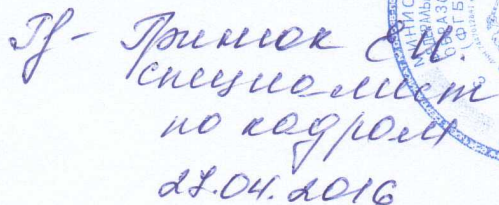 Гринюк Е.И.
специалист
по кадрам
27.04.2016